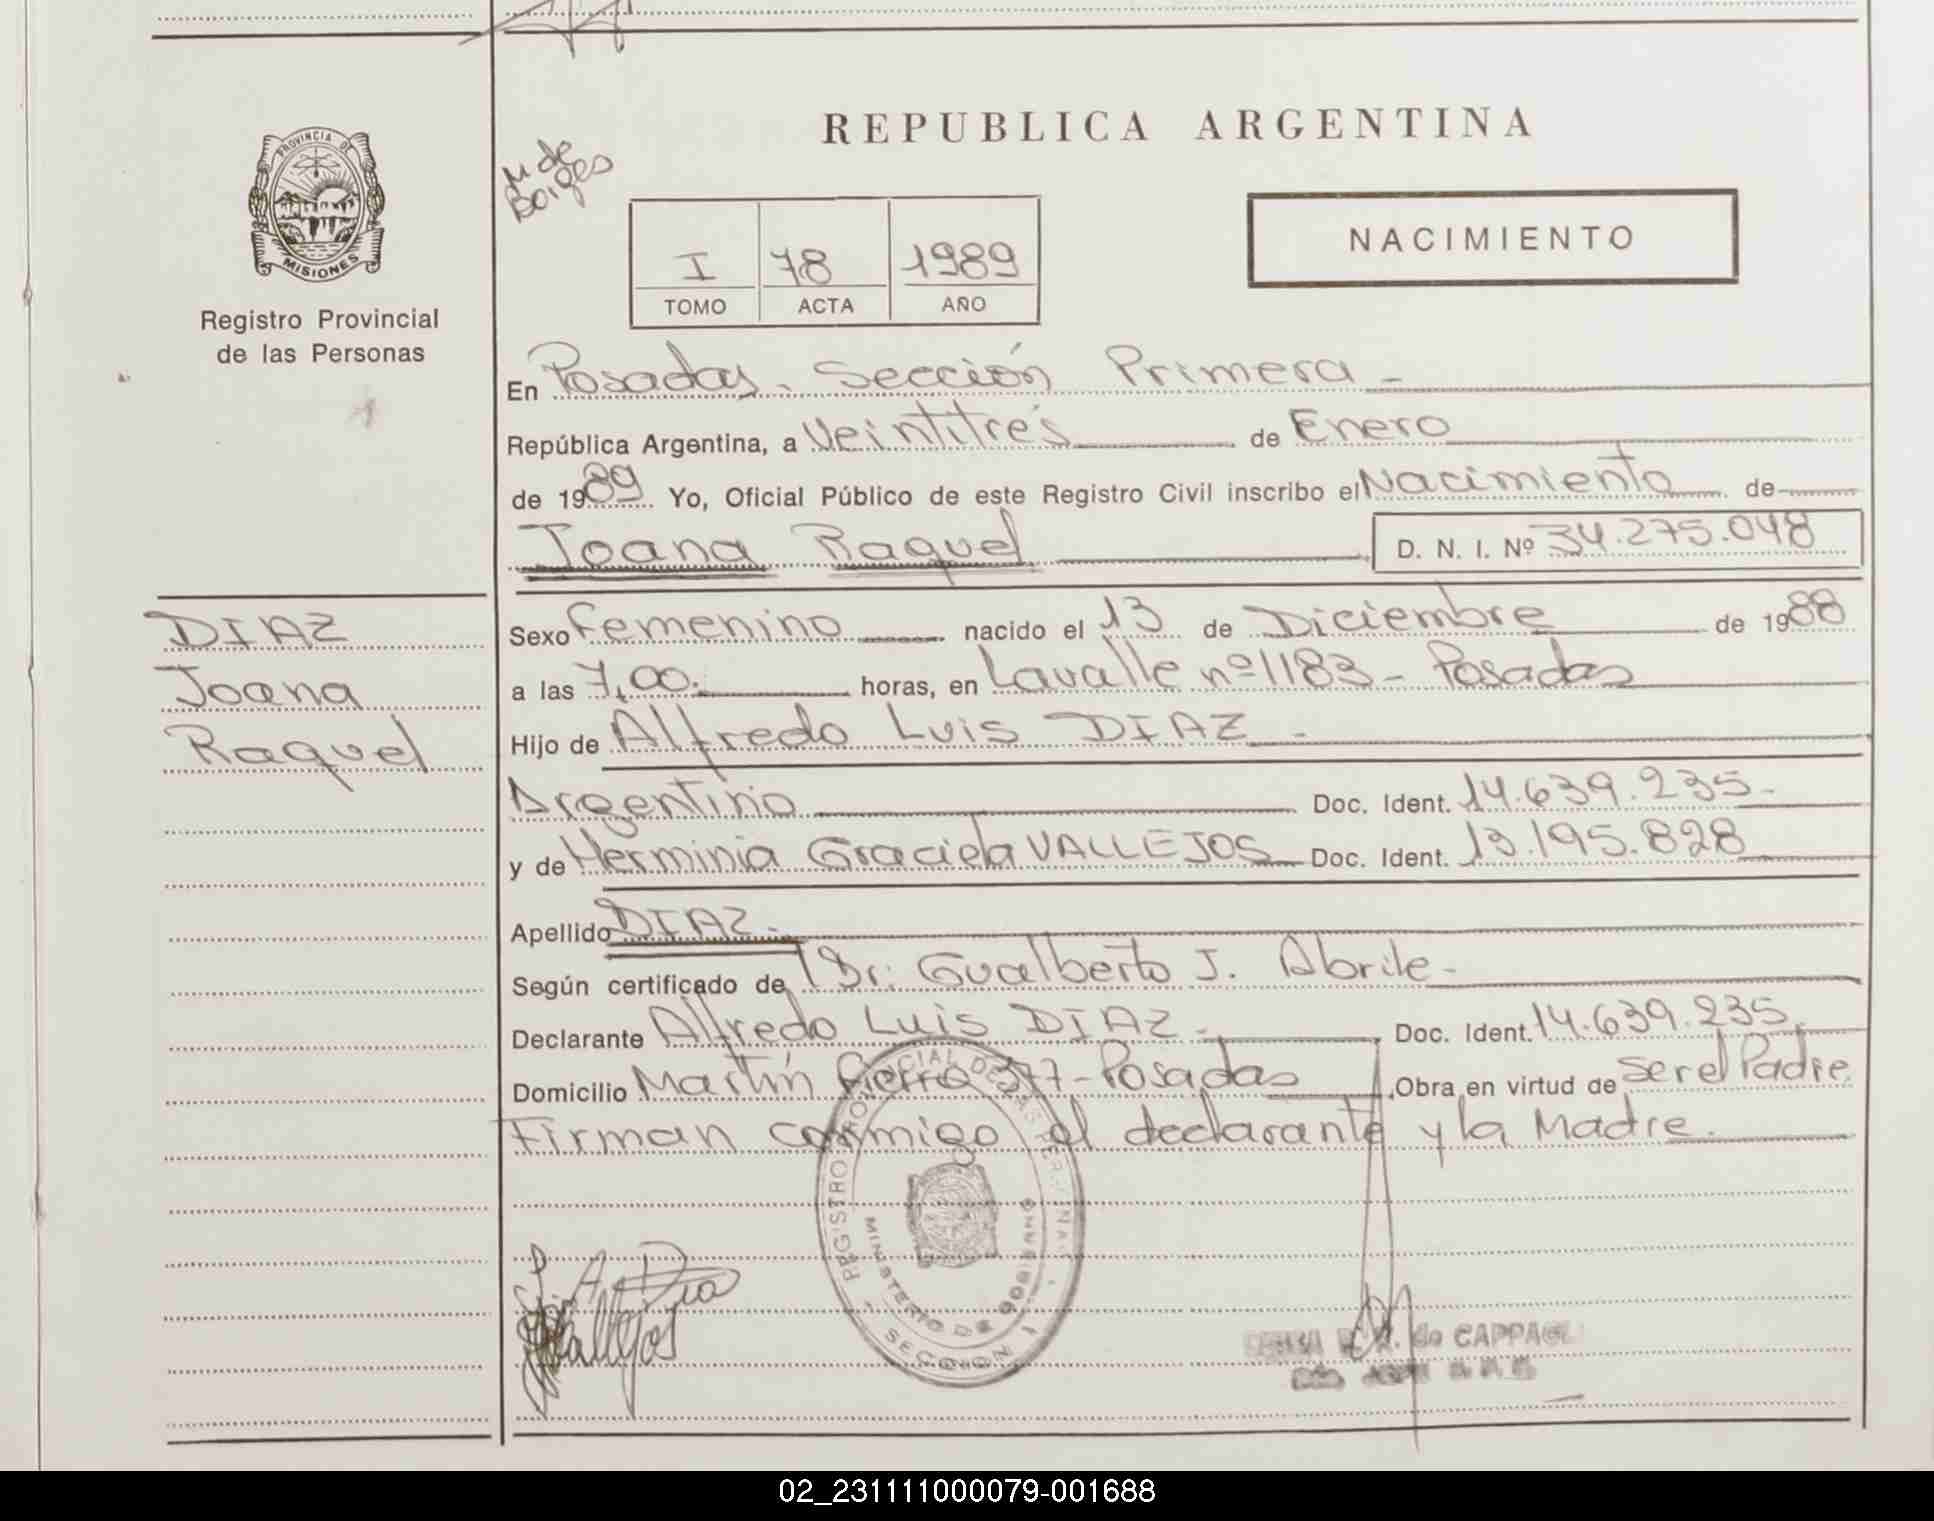 REPUBLICA ARGENTINA
PROVINCIA DE
MISIONES
Registro Provincial
de las Personas
M de
Borges
I 78 1989
TOMO ACTA AÑO
NACIMIENTO
En Posadas. Sección Primera -
República Argentina, a Veintitrés de Enero
de 1989 Yo, Oficial Público de este Registro Civil inscribo el Nacimiento de
Joana Raquel D. N. I. Nº 34.275.048
DIAZ
Joana
Raquel
Sexo femenino nacido el 13 de Diciembre de 1988
a las 7,00. horas, en Lavalle nº 1183 - Posadas
Hijo de Alfredo Luis DIAZ -
Argentino Doc. Ident. 14.639.235-
y de Herminia Graciela VALLEJOS Doc. Ident. 13.195.828
Apellido DIAZ.
Según certificado de Dr. Gualberto J. Abrile-
Declarante Alfredo Luis DIAZ - Doc. Ident. 14.639.235.
Domicilio Martín Fierro 377 - Posadas Obra en virtud de ser el Padre
Firman conmigo el declarante y la Madre.
REGISTRO PROVINCIAL DE LAS PERSONAS
MINISTERIO DE GOBIERNO
SECCION 1
A Diaz
Vallejos
de CAPPAGLI
02_231111000079-001688